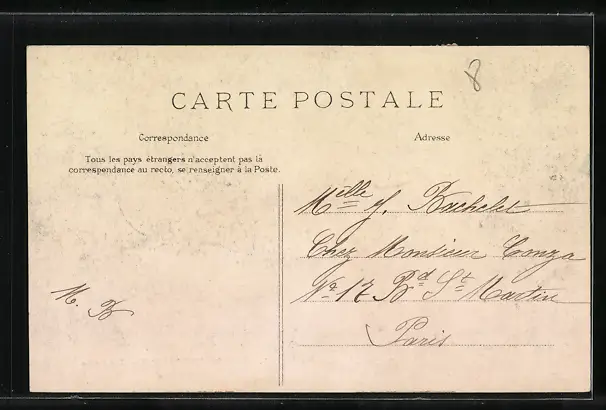 8
CARTE POSTALE
Correspondance
Adresse
Tous les pays étrangers n'acceptent pas la
correspondance au recto, se renseigner à la Poste.
Melle Y. Bachelet
Chez Monsieur Conza
No 17 Bd St Martin
Paris
M. B